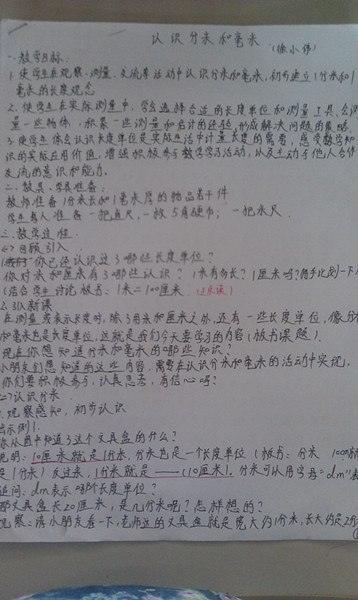 认识分米和毫米
(徐小伟)
一.教学目标
1.使学生在观察、测量、交流等活动中认识分米和毫米,初步建立1分米和1
毫米的长度观念
2.使学生在实际测量中,学会选择合适的长度单位和测量工具,会测
量一些物体,积累一些测量和估计的经验,形成解决问题的策略
3.使学生体会认识长度单位是实际生活中计量长度的需要,感受数学知
识的实际应用价值,增进积极参与数学学习活动,以及主动与他人合作
交流的意识和能力。
二.教具、学具准备:
教师准备1分米长和1毫米厚的物品若干件
学生每人准备一把直尺,一枚5角硬币,一把米尺
三.教学过程
<一>回顾引入
你已经认识过了哪些长度单位?
你对米和厘米有了哪些认识?1米有多长?1厘米呢?用手比划一下
(结合学生讨论板书:1米=100厘米
2.引入新课
在测量或表示长度时,除了用米和厘米之外,还有一些长度单位,像分
和毫米也是长度单位,这就是我们今天要学习的内容(板书课题).
现在你想知道分米和毫米的哪些知识?
小朋友们想知道的这些内容,需要在认识分米和毫米的活动中实现.
你们要积极参与,认真思考,有信心吗?
<二>认识分米
1.观察感知,初步认识
出示例1.
你从图中知道了这个文具盒的什么?
说明:10厘米就是1分米,分米也是一个长度单位(板书:分米 10厘米
是1分米)反过来,1分米就是——(10厘米).分米可以用字母"dm"表
追问:dm表示哪个长度单位?
那文具盒长20厘米,是几分米呢?怎样想的?
观察:请小朋友看一下,老师这的文具盒就是宽大约1分米,长大约是2分